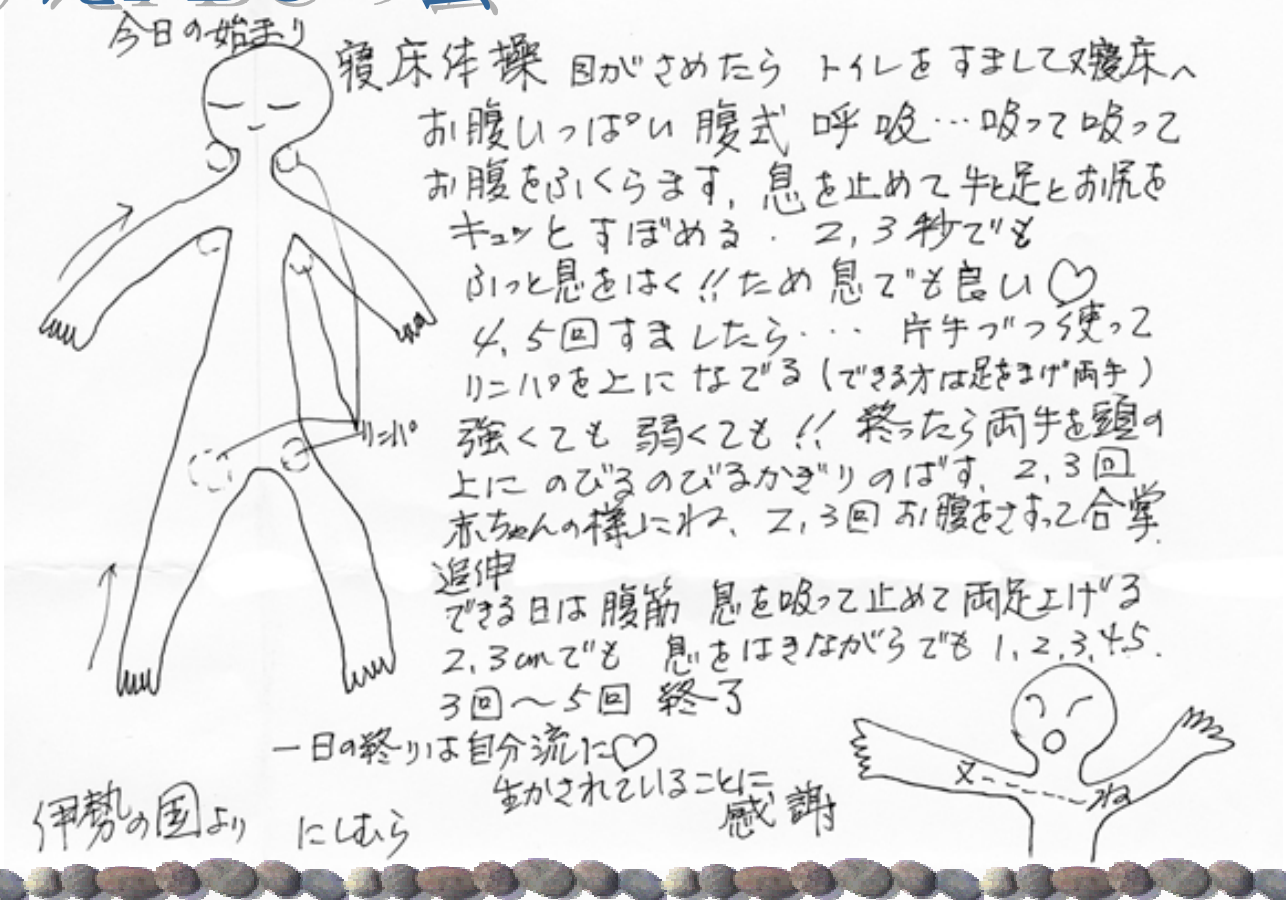 今日の始まり
寝床体操 目がさめたら トイレをすまして又寝床へ
お腹いっぱい 腹式 呼吸…吸って吸って
お腹をふくらます、息を止めて手と足とお尻を
キュッとすぼめる. 2,3秒でも
ふっと息をはく!!ため息でも良い♡
4,5回すましたら‥‥ 片手づつ使って
リンパを上になでる(できる方は足をまげ両手)
リンパ
強くても 弱くても!! 終ったら両手を頭の
上に のびるのびるかぎりのばす、2,3回
赤ちゃんの様にね、2,3回 お腹をさすって合掌.
追伸
できる日は腹筋 息を吸って止めて両足上げる
2,3cmでも 息をはきながらでも 1,2,3,4,5.
3回〜5回 終了
一日の終りは自分流に♡
生かされていることに
感謝
又
ね
伊勢の国より にしむら